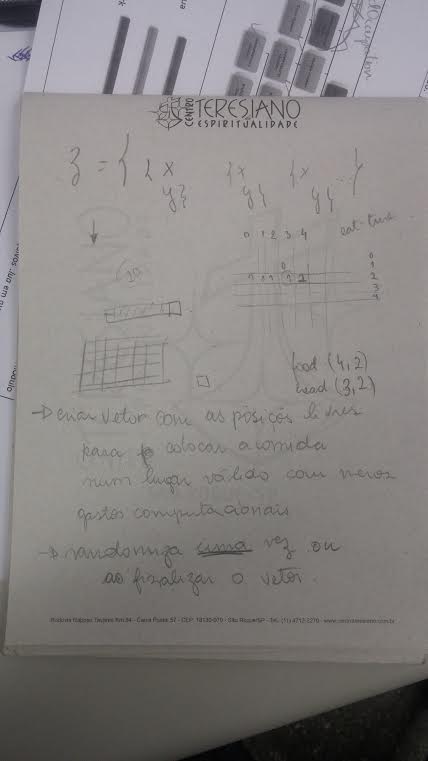 CENTRO
TERESIANO
DE
ESPIRITUALIDADE
z = { { x { x { x ... }
y } y } y }
0 1 2 3 4
0
0
1
1 1 1 1 2
2
3
4
food (4,2)
head (3,2)
→ criar vetor com as posições livres
para colocar a comida
num lugar válido com menos
gastos computacionais
→ randomiza uma vez ou
ao finalizar o vetor.
Rodovia Raposo Tavares Km 54 - Caixa Postal 57 - CEP: 18130-970 - São Roque/SP - Tel. (11) 4712-2270 - www.centroteresiano.com.br